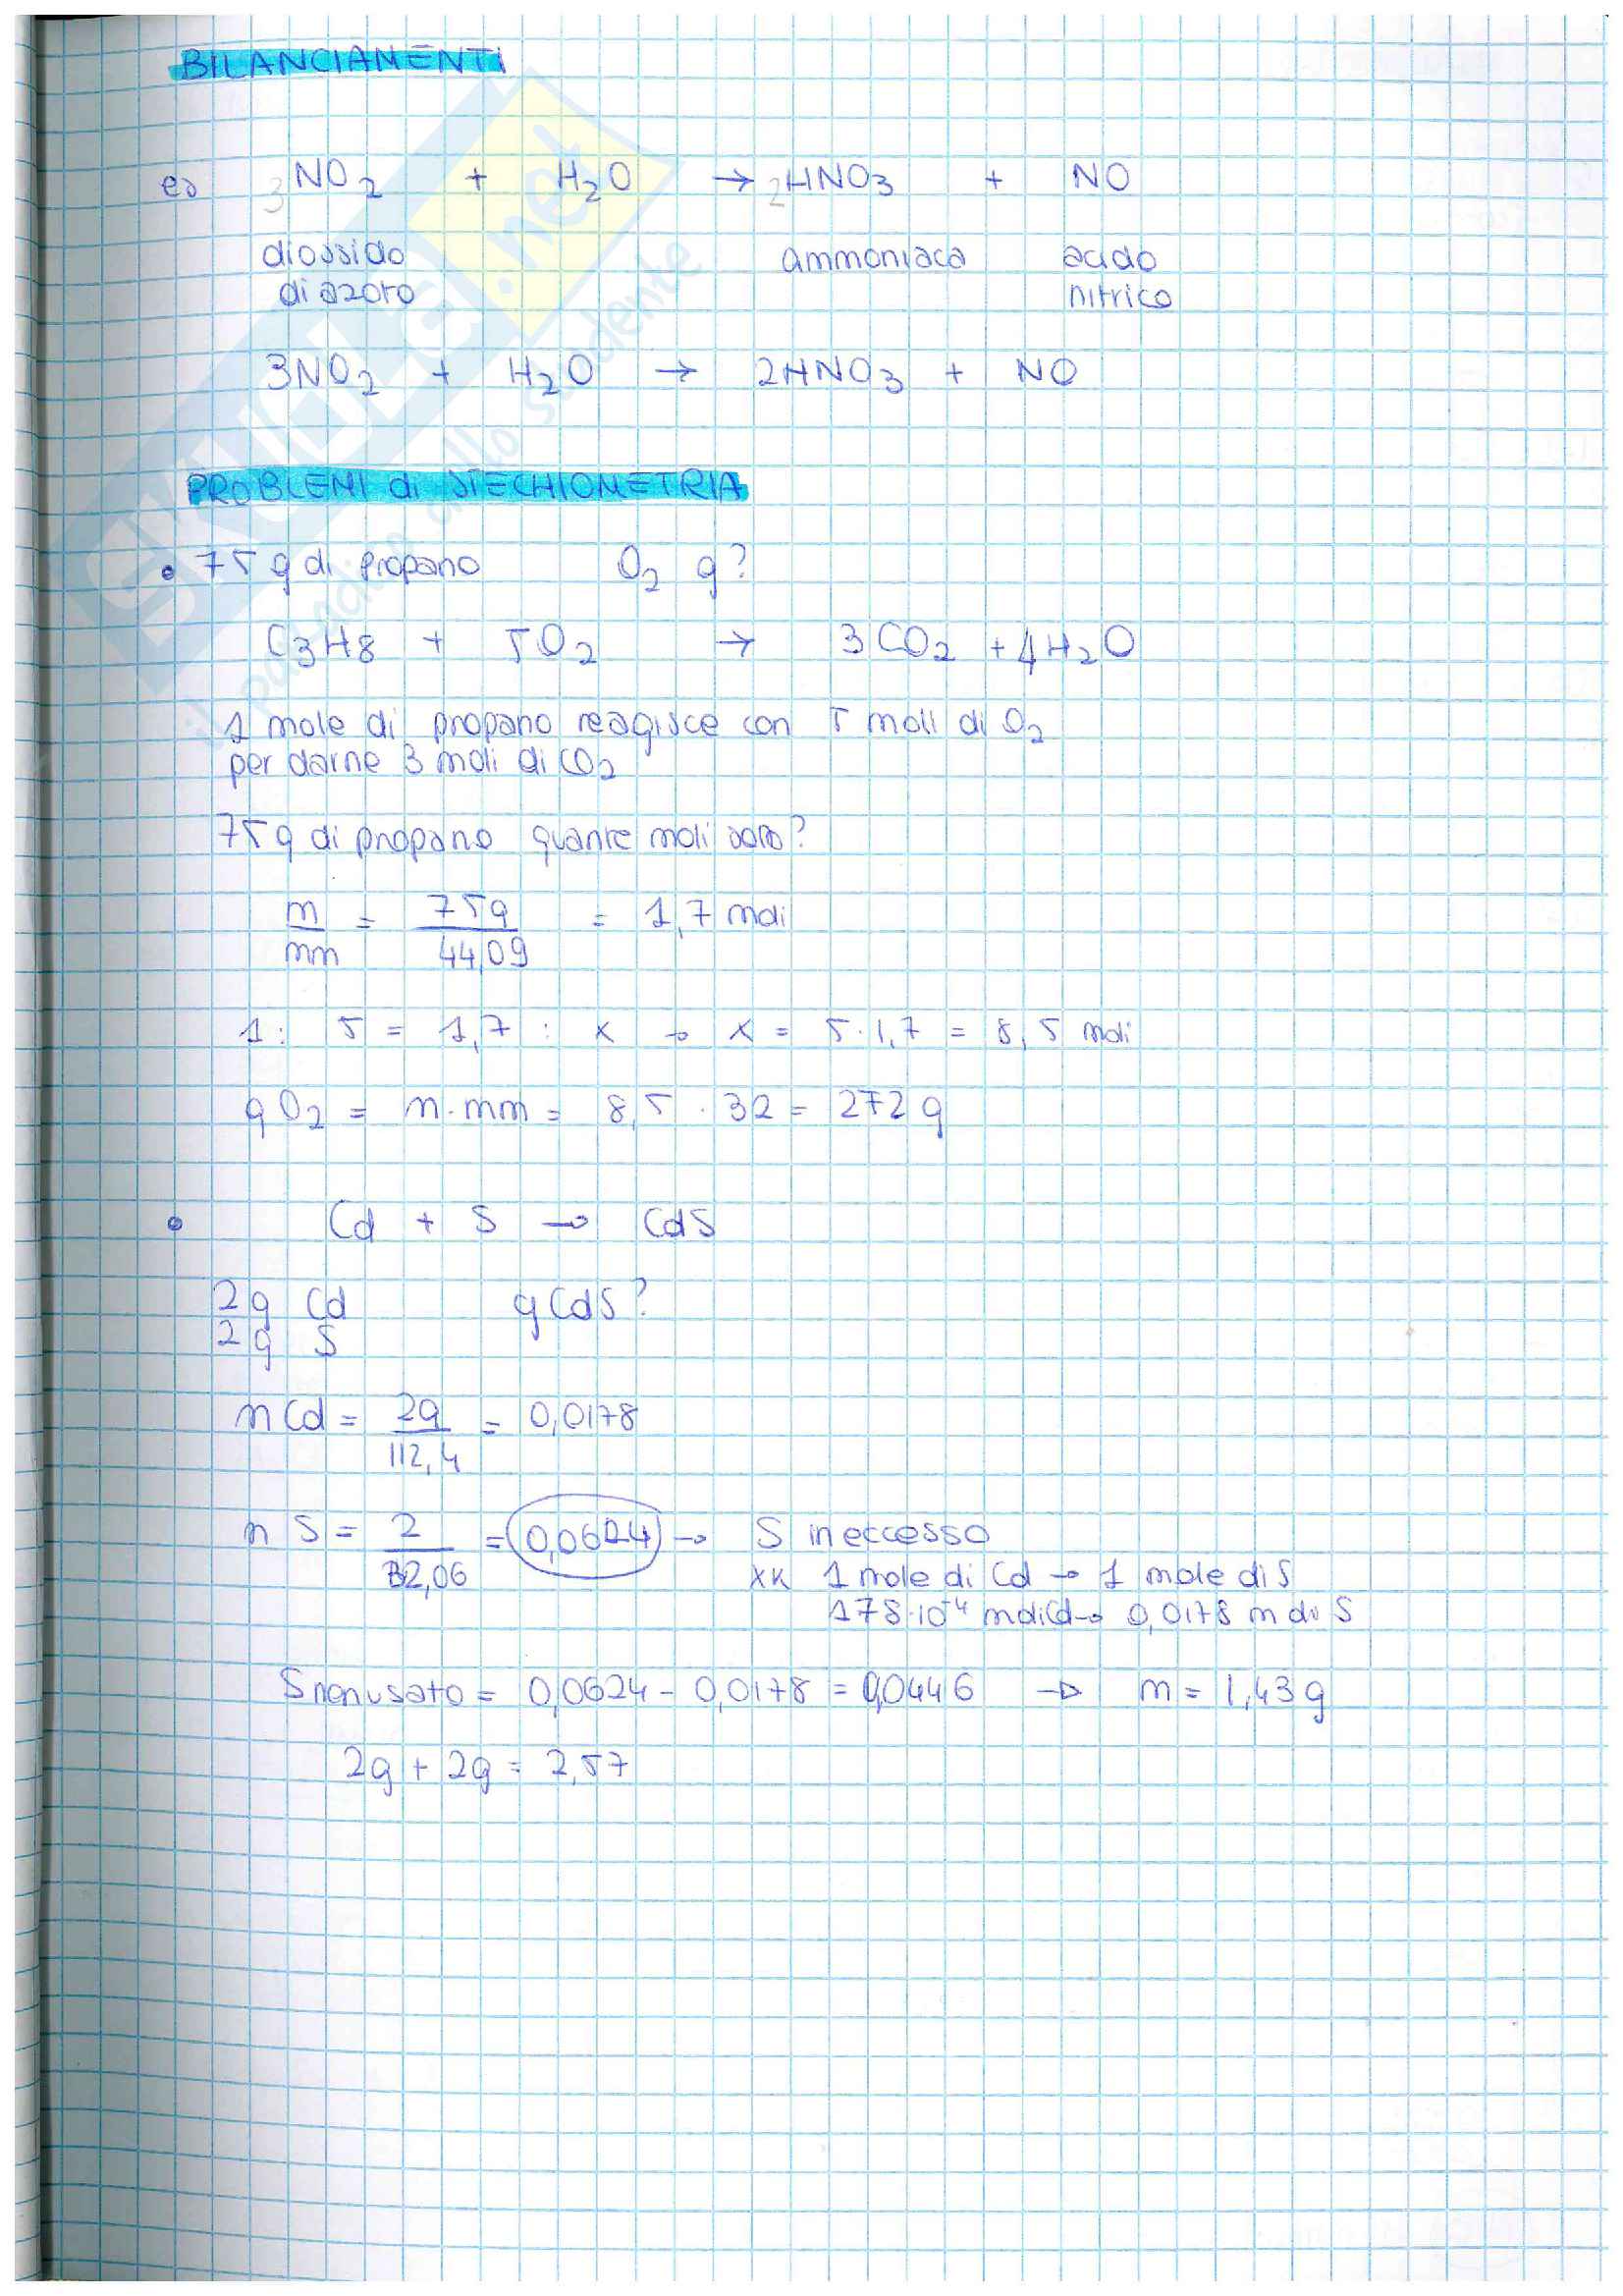 BILANCIAMENTI
es 3NO2 + H2O → 2HNO3 + NO
diossido di azoto ammoniaca acido nitrico
3NO2 + H2O → 2HNO3 + NO
PROBLEMI di STECHIOMETRIA
• 75 g di propano O2 g?
C3H8 + 5O2 → 3CO2 + 4H2O
1 mole di propano reagisce con 5 moli di O2
per darne 3 moli di CO2
75g di propano quante moli sono?
m/mm = 75g/44,09 = 1,7 moli
1 : 5 = 1,7 : x → x = 5·1,7 = 8,5 moli
g O2 = n·mm = 8,5 · 32 = 272 g
• Cd + S → CdS
2g Cd g CdS?
2g S
n Cd = 2g/112,4 = 0,0178
n S = 2/32,06 = 0,0624 → S in eccesso
xk 1 mole di Cd → 1 mole di S
178·10^-4 m di Cd → 0,0178 m di S
S non usato = 0,0624 - 0,0178 = 0,0446 → m = 1,43 g
2g + 2g = 2,57
SKUOLA.net
il paradiso dello studente